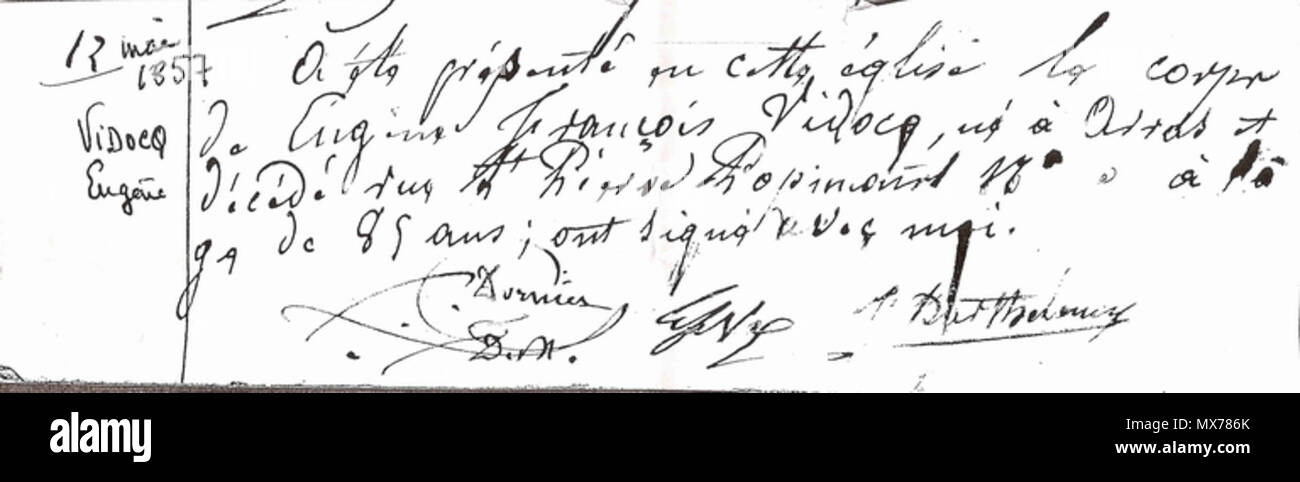 12 mai
1857
VIDOCQ
Eugène
A été présenté en cette église le corps
de Eugène François Vidocq, né à Arras et
décédé rue St Pierre Popincourt 18 à l'â
ge de 85 ans; ont signé avec moi.
Dornier
Barthelemy
a
alamy
Image ID: MX786K
www.alamy.com